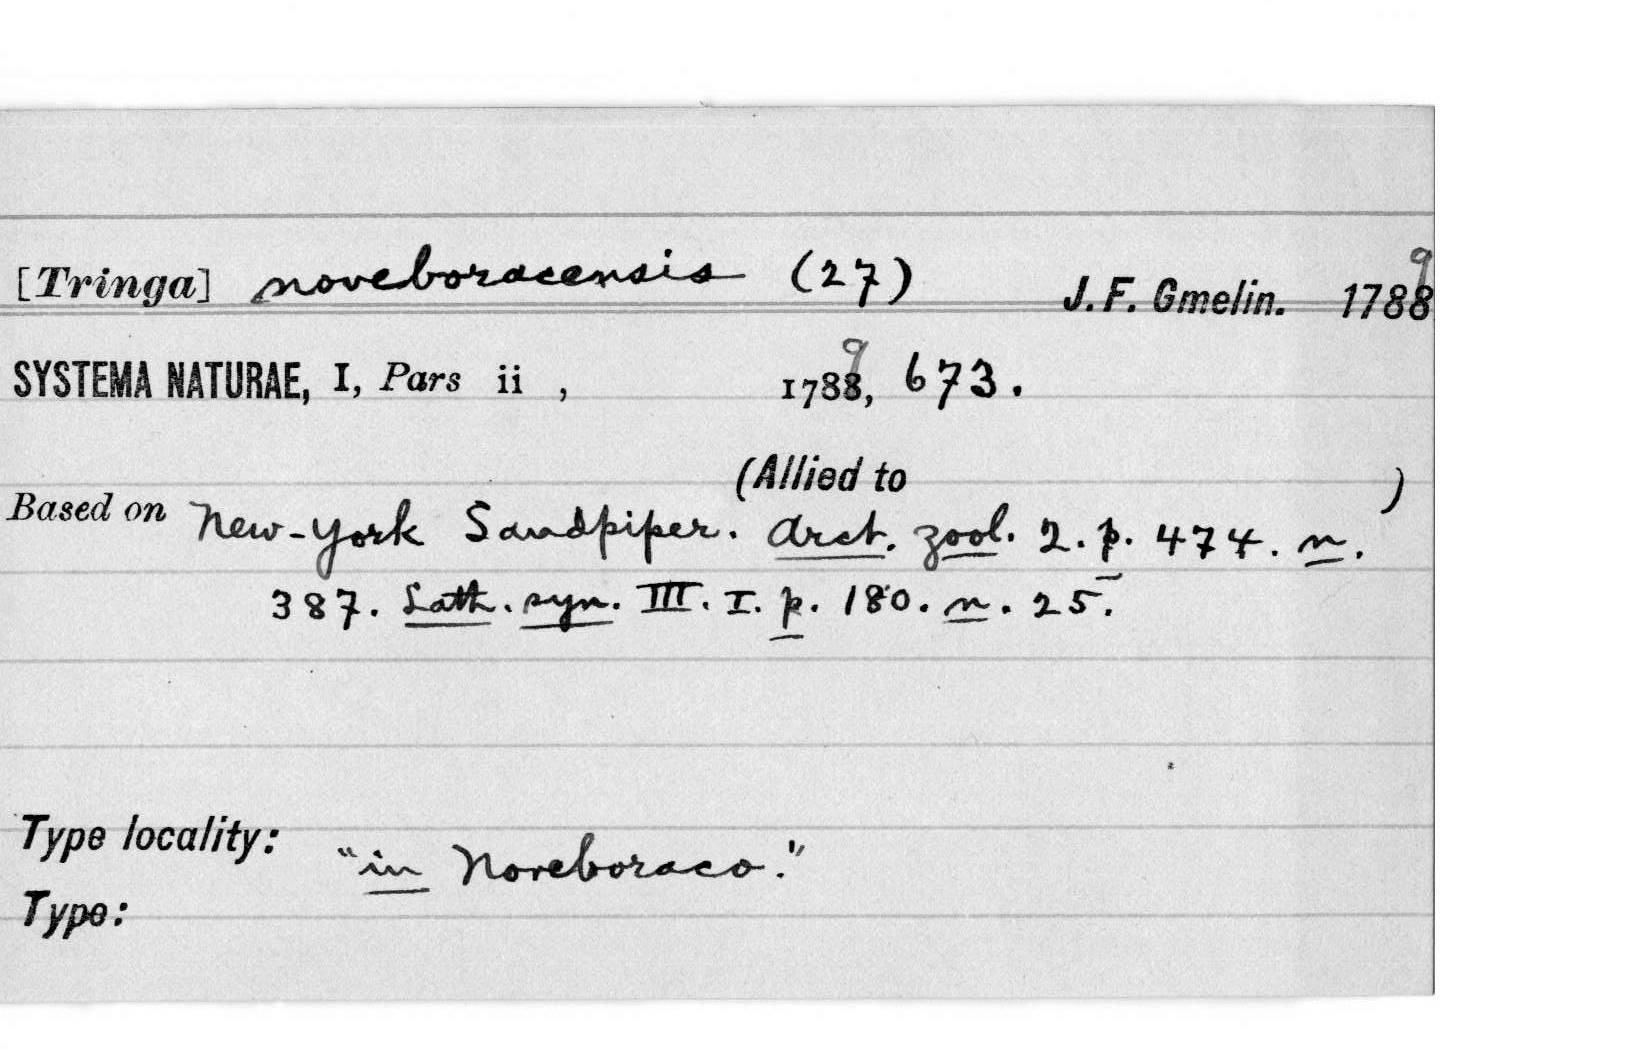 [Tringa] noveboracensis (27) J. F. Gmelin. 1788 9
SYSTEMA NATURAE, I, Pars ii , 1788, 9 673.
(Allied to )
Based on New-York Sandpiper. Arct. zool. 2. p. 474. n.
387. Lath. syn. III. I. p. 180. n. 25.
Type locality: "in Noveboraco."
Type: